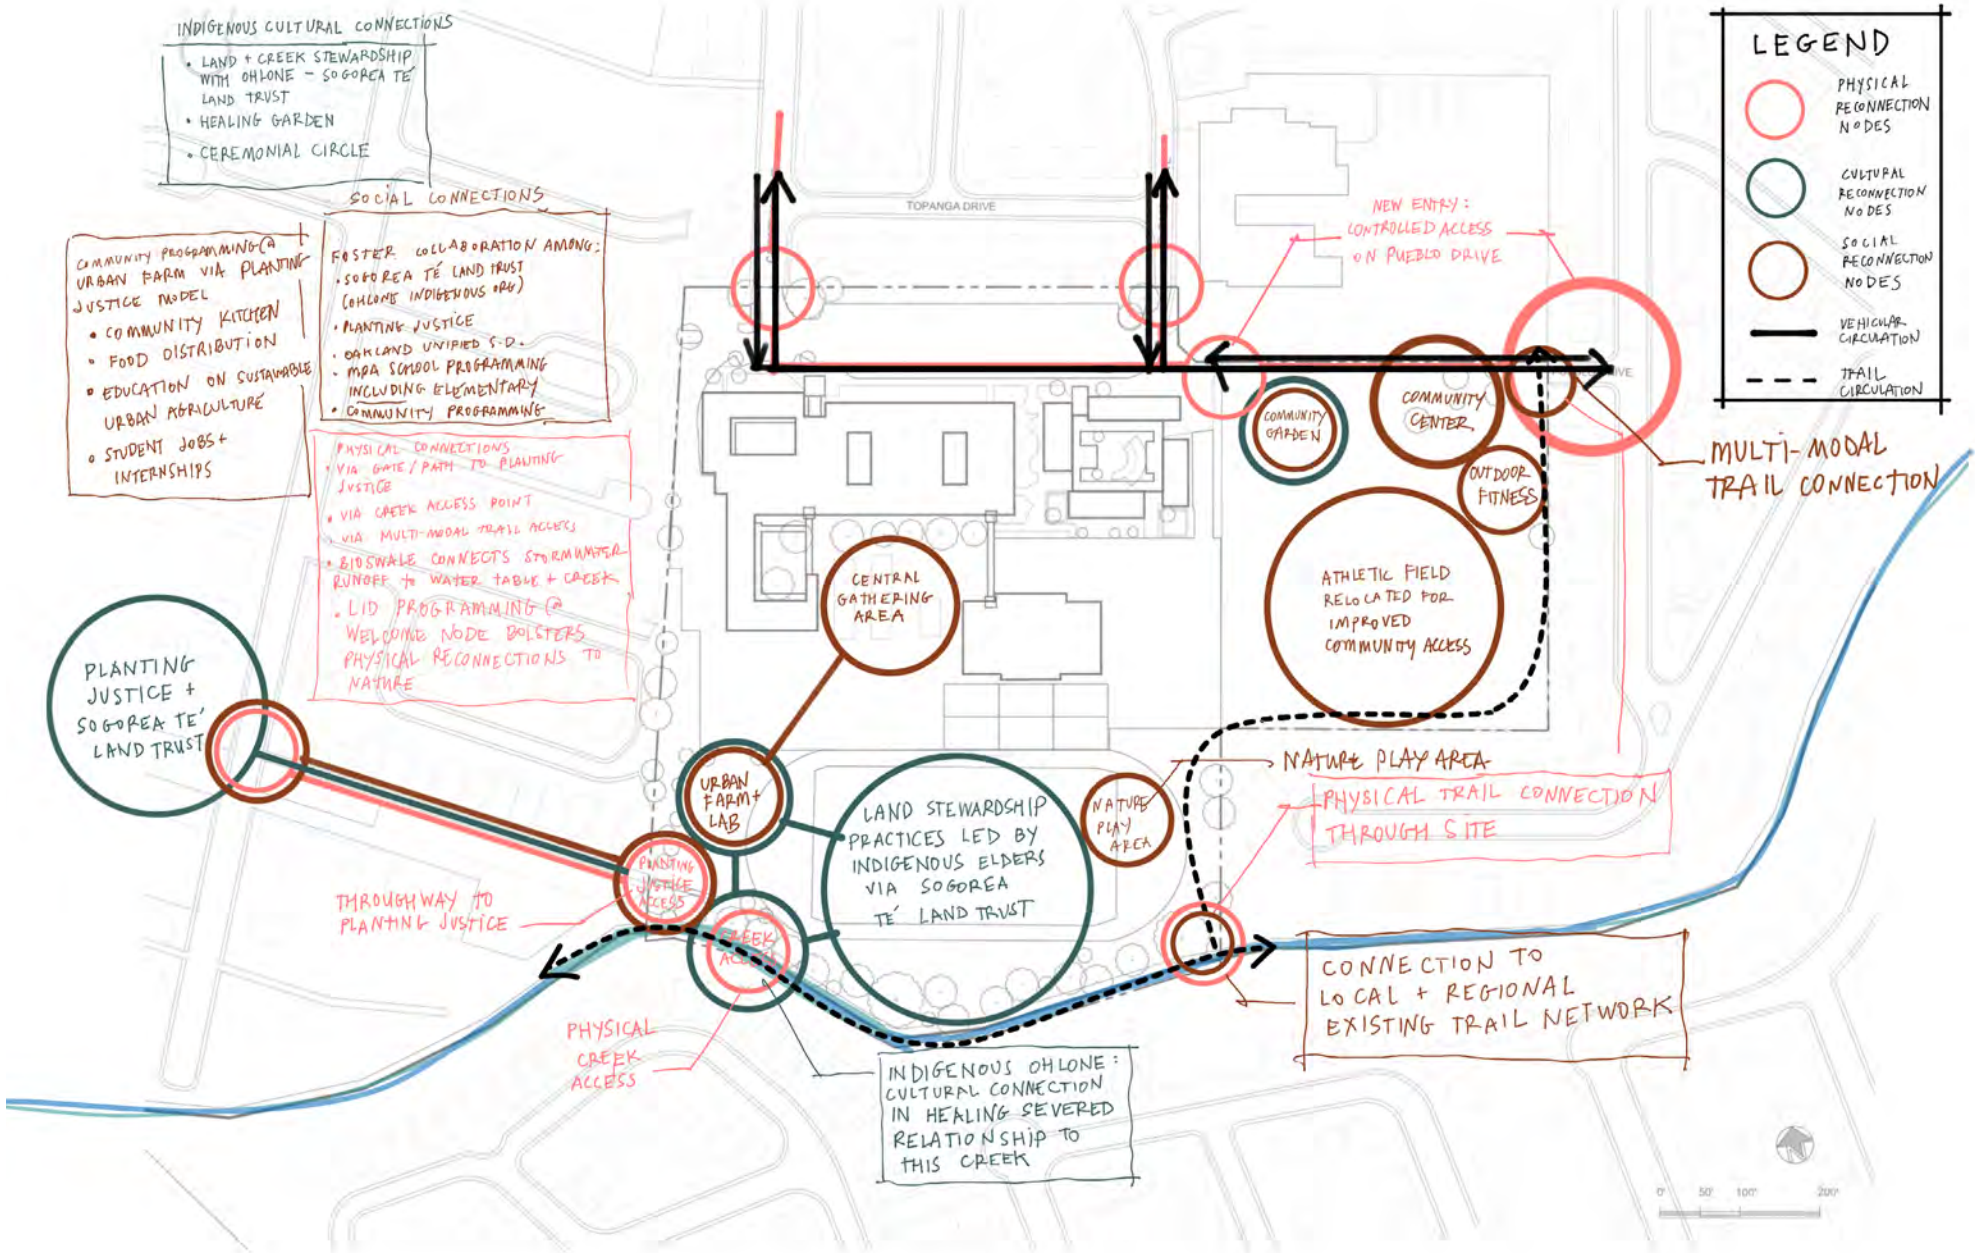 INDIGENOUS CULTURAL CONNECTIONS
• LAND + CREEK STEWARDSHIP
WITH OHLONE - SOGOREA TÉ
LAND TRUST
• HEALING GARDEN
• CEREMONIAL CIRCLE
SOCIAL CONNECTIONS
FOSTER COLLABORATION AMONG:
• SOGOREA TÉ LAND TRUST
(OHLONE INDIGENOUS ORG)
• PLANTING JUSTICE
• OAKLAND UNIFIED S.D.
• MPA SCHOOL PROGRAMMING
INCLUDING ELEMENTARY
• COMMUNITY PROGRAMMING
COMMUNITY PROGRAMMING @
URBAN FARM VIA PLANTING
JUSTICE MODEL
• COMMUNITY KITCHEN
• FOOD DISTRIBUTION
• EDUCATION ON SUSTAINABLE
URBAN AGRICULTURE
• STUDENT JOBS +
INTERNSHIPS
PHYSICAL CONNECTIONS
• VIA GATE/PATH TO PLANTING
JUSTICE
• VIA CREEK ACCESS POINT
• VIA MULTI-MODAL TRAIL ACCESS
• BIOSWALE CONNECTS STORMWATER
RUNOFF TO WATER TABLE + CREEK
• LID PROGRAMMING @
WELCOME NODE BOLSTERS
PHYSICAL RECONNECTIONS TO
NATURE
TOPANGA DRIVE
NEW ENTRY:
CONTROLLED ACCESS
ON PUEBLO DRIVE
LEGEND
PHYSICAL
RECONNECTION
NODES
CULTURAL
RECONNECTION
NODES
SOCIAL
RECONNECTION
NODES
VEHICULAR
CIRCULATION
TRAIL
CIRCULATION
COMMUNITY
GARDEN
COMMUNITY
CENTER
OUTDOOR
FITNESS
MULTI-MODAL
TRAIL CONNECTION
ATHLETIC FIELD
RELOCATED FOR
IMPROVED
COMMUNITY ACCESS
CENTRAL
GATHERING
AREA
PLANTING
JUSTICE +
SOGOREA TE'
LAND TRUST
URBAN
FARM +
LAB
LAND STEWARDSHIP
PRACTICES LED BY
INDIGENOUS ELDERS
VIA SOGOREA
TÉ LAND TRUST
NATURE
PLAY
AREA
NATURE PLAY AREA
PHYSICAL TRAIL CONNECTION
THROUGH SITE
PLANTING
JUSTICE
ACCESS
THROUGHWAY TO
PLANTING JUSTICE
CREEK
ACCESS
PHYSICAL
CREEK
ACCESS
CONNECTION TO
LOCAL + REGIONAL
EXISTING TRAIL NETWORK
INDIGENOUS OHLONE:
CULTURAL CONNECTION
IN HEALING SEVERED
RELATIONSHIP TO
THIS CREEK
0' 50' 100' 200'